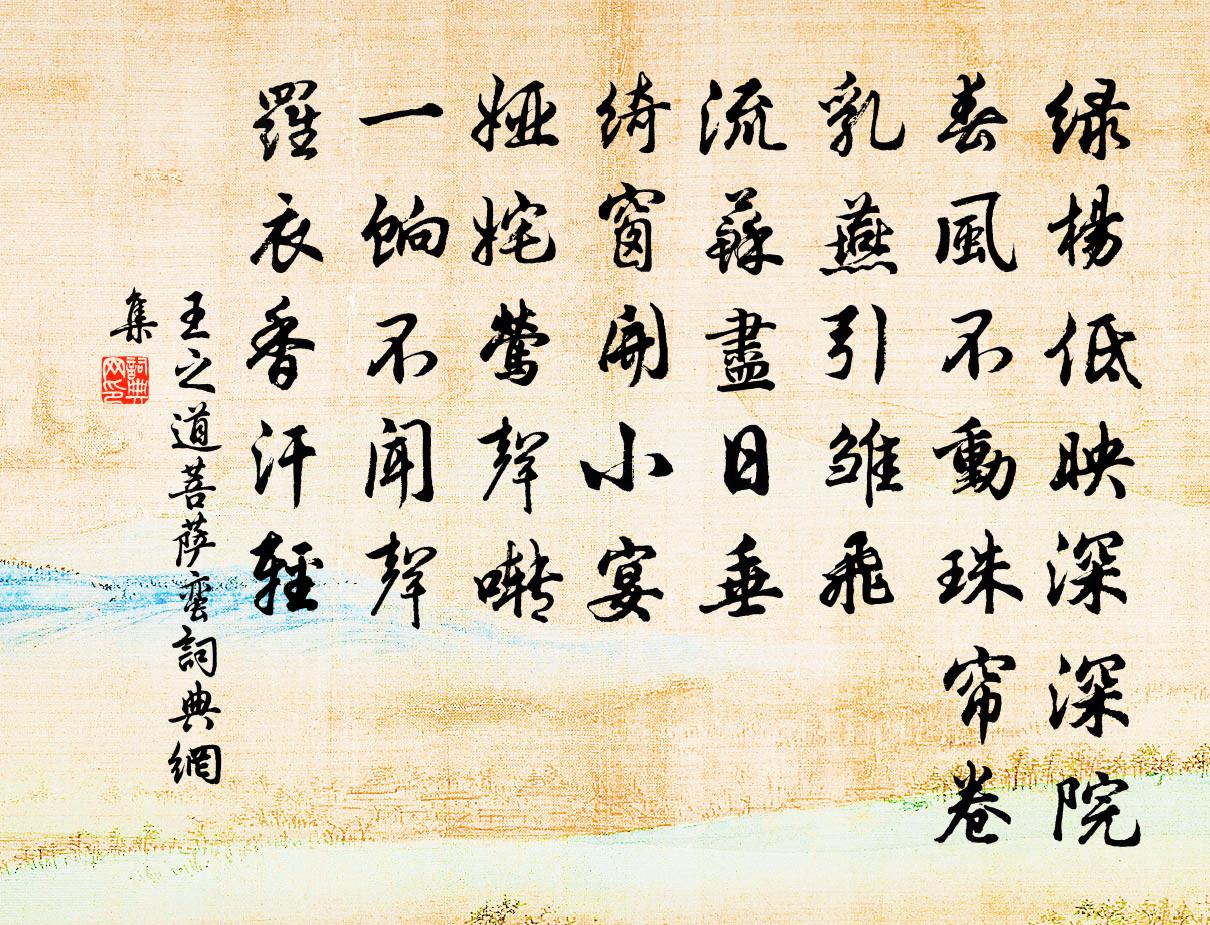 绿楊低映深深院
春風不動珠帘卷
乳燕引雛飛
流蘇盡日垂
綺窗開小宴
娅姹鶯聲囀
一餉不聞聲
羅衣香汗輕
王之道菩薩蛮詞典網
集
詞典
网印